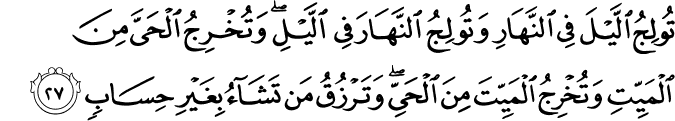 تُولِجُ ٱلَّيْلَ فِي ٱلنَّهَارِ وَتُولِجُ ٱلنَّهَارَ فِي ٱلَّيْلِۖ وَتُخْرِجُ ٱلْحَيَّ مِنَ
ٱلْمَيِّتِ وَتُخْرِجُ ٱلْمَيِّتَ مِنَ ٱلْحَيِّۖ وَتَرْزُقُ مَن تَشَآءُ بِغَيْرِ حِسَابٍ ٢٧